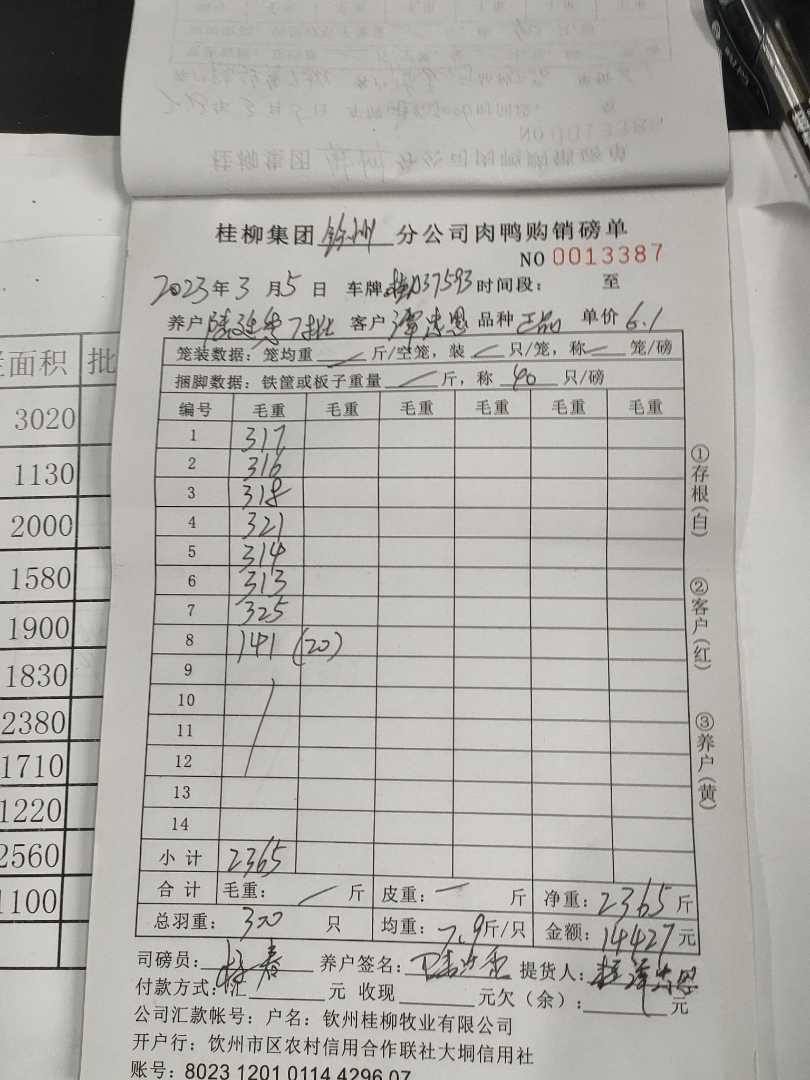 桂柳集团 钦州 分公司肉鸭购销磅单
NO 0013387
2023年3月5日 车牌 D37593 时间段： 至
养户 7批 客户 谭忠恩 品种 正品 单价 6.1
笼装数据：笼均重 斤/空笼，装 只/笼，称 笼/磅
捆脚数据：铁筐或板子重量 斤，称 40 只/磅
编号 毛重 毛重 毛重 毛重 毛重 毛重
1 317
2 316
3 318
4 321
5 314
6 313
7 325
8 141 (20)
9
10
11
12
13
14
小计 2365
合计 毛重： 斤 皮重： 斤 净重：2365斤
总羽重：300 只 均重：7.9斤/只 金额：14427元
司磅员： 养户签名： 提货人：
付款方式：汇 元 收现 元欠（余）： 元
公司汇款帐号：户名：钦州桂柳牧业有限公司
开户行：饮州市区农村信用合作联社大垌信用社
账号：8023 1201 0114 4296 07
①存根（白）
②客户（红）
③养户（黄）
面积 批
3020
1130
2000
1580
1900
1830
2380
1710
1220
2560
1100